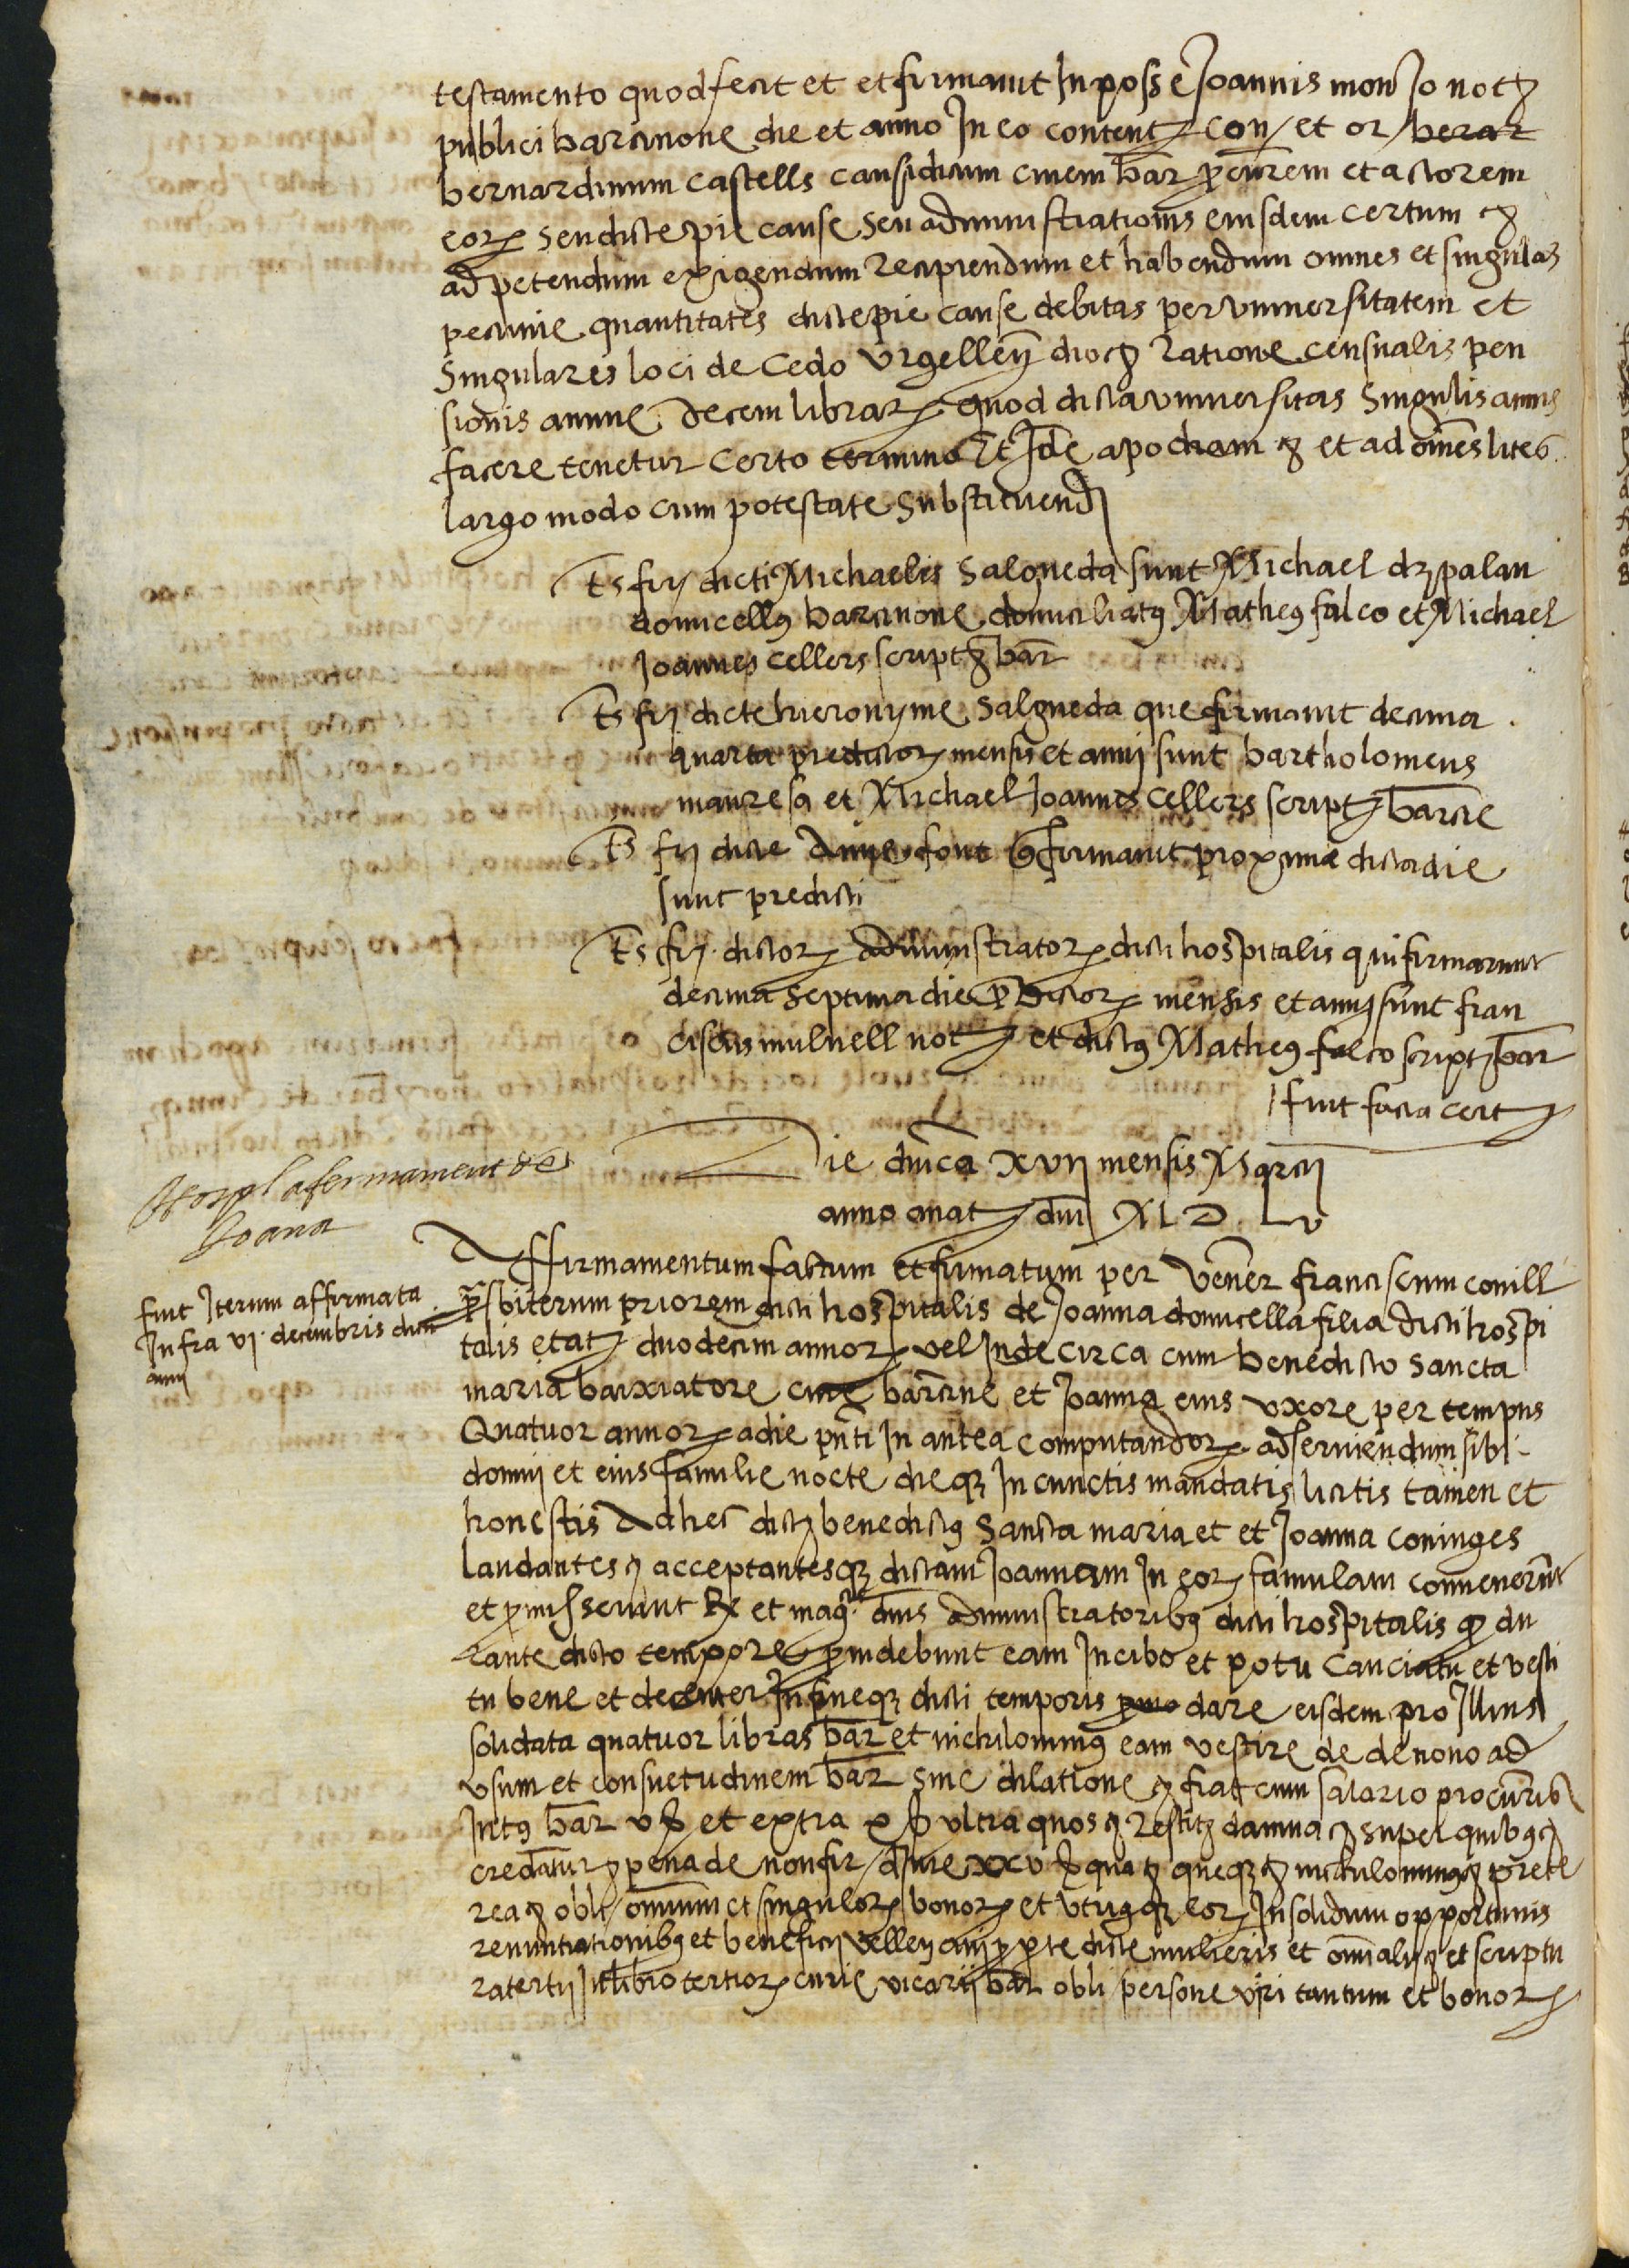 testamento quod fecit et et firmavit In posse Joannis monso not
publici barcinone die et anno In eo content con et or berar
bernardinum castells causidicum civem bar procurem et actorem
eor seu dicte pie cause seu administrationis eiusdem certum
ad petendum exigendum recipiendum et habendum omnes et singulas
pecunie quantitates dicte pie cause debitas per universitatem et
Singulares loci de Cedo Urgellen dioc ratione censualis pen
sionis annue decem librar quod dicta universitas singulis annis
facere tenetur certo termino Et Inde apocham et ad omnes lites
largo modo cum potestate substituendi
Ts firme dicti Michaelis Salgueda sunt Michael de palau
domicellus barcinone domiciliatus Matheus falco et Michael
Joannes cellers script bar
Ts firme dicte hieronyme Salgueda que firmavit decima
quarta predictor mensis et anni sunt bartholomeus
manresa et Michael Joannes cellers script barcine
Ts firme dicte Anne font que firmavit proxime dicta die
sunt predicti
Ts firme dictor administrator dicti hospitalis qui firmarunt
decima septima die predictor mensis et anni sunt fran
ciscus mulnell not et dictus Matheus falco script bar
fuit facta cert
Die dnica xvii mensis Marcii
anno a nat dni MD Lv
Hospl afermament de
Joana
fuit Iterum affirmata
Infra vi decembris dicti
anni
Affirmamentum factum et firmatum per Vener franciscum conill
presbiterum priorem dicti hospitalis de Joanna domicella filia dicti hospi
talis etat duodecim annor vel Inde circa cum benedicto sancta
maria baixiatore cive barcine et Joanna eius uxore per tempus
Quatuor annor a die pnti In antea computandor ad serviendum sibi
domui et eius familie nocte dieque In cunctis mandatis licitis tamen et
honestis Ad hec dict benedictus Sancta maria et et Joanna coniuges
laudantes acceptantesque dictam Joannam In eor famulam convenerunt
et promisserunt R et mag dnis Administratoribus dicti hospitalis q du
rante dicto tempore providebunt eam In cibo et potu canciatu et vesti
tu bene et decenter In fineque dicti temporis dare eisdem pro Illius
solidata quatuor libras bar et nichilominus eam vestire de de novo ad
usum et consuetudinem bar sine dilatione fiat cum salario procurib
Intus bar v s et extra x s ultra quos restit damna super quibus
credatur pena de non fir Jure xxv s queque nichilominus prete
rea obli omnium et singulor bonor et utriusque eor In solidum opportunis
renuntiationibus et beneficii velleyani pro parte dicte mulieris et omni alii et scriptu
ra tertii In libro tertior curie vicarii bar obli persone viri tantum et bonor